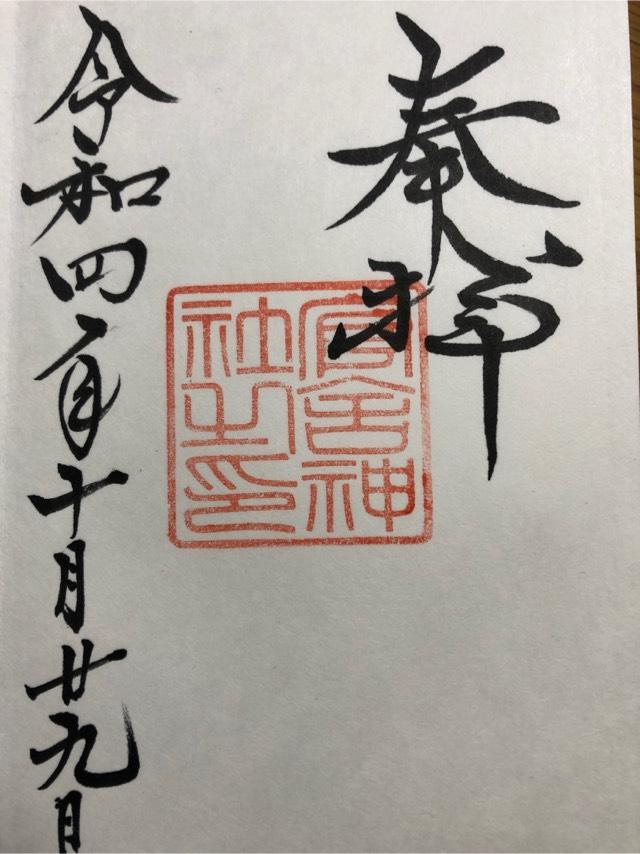 奉拝
官舎神
社之印
令和四年十月廿九日